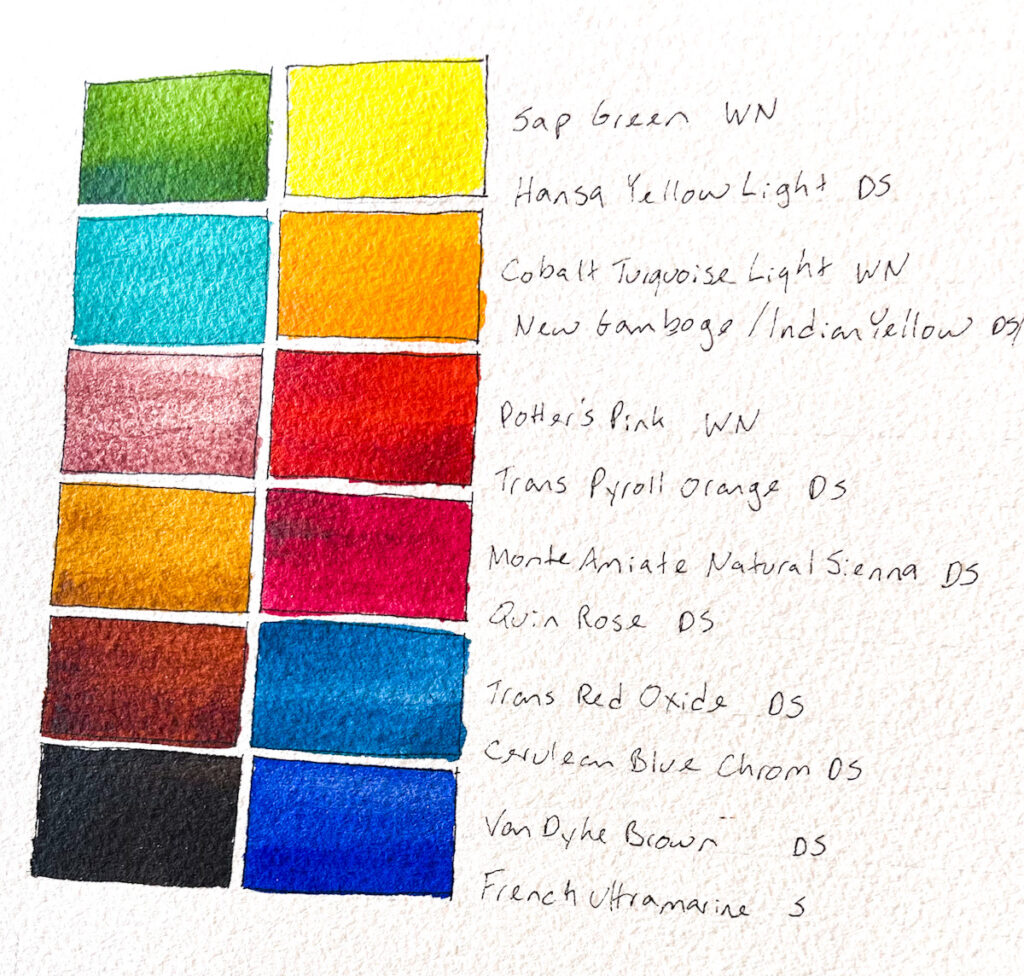 Sap Green WN
Hansa Yellow Light DS
Cobalt Turquoise Light WN
New Gamboge / Indian Yellow DS/
Potter's Pink WN
Trans Pyroll Orange DS
Monte Amiate Natural Sienna DS
Quin Rose DS
Trans Red Oxide DS
Cerulean Blue Chrom DS
Van Dyke Brown DS
French Ultramarine S